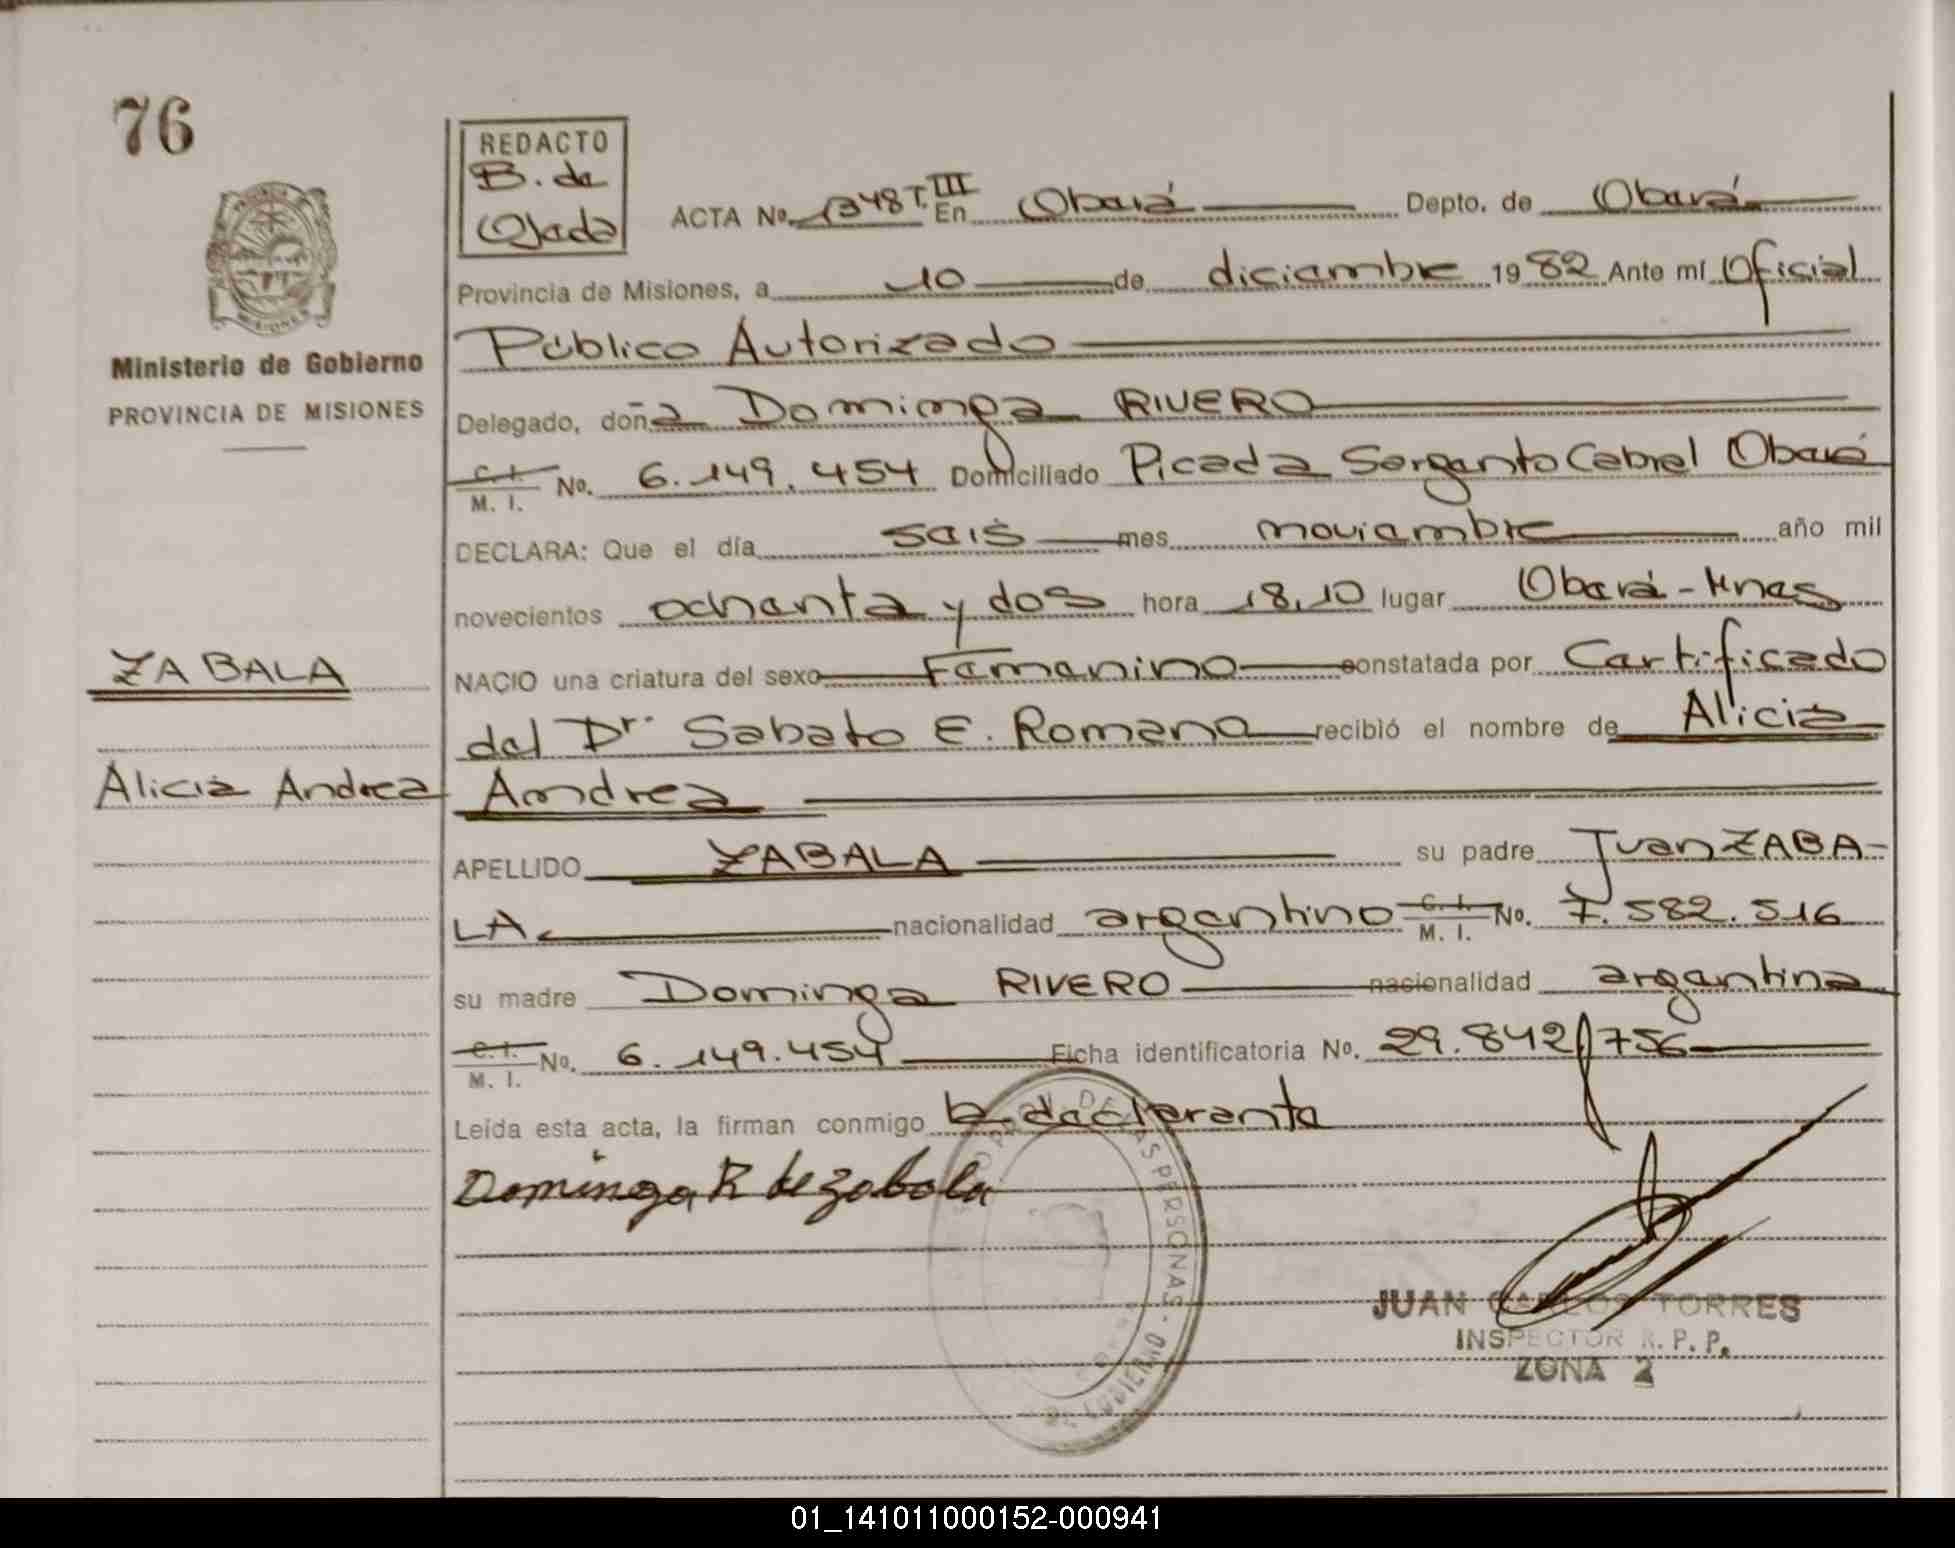 76
REDACTO
B. de
Ojeda
ACTA No. 1348 T. III En Oberá Depto. de Oberá
Provincia de Misiones, a 10 de diciembre 1982 Ante mí Oficial
Público Autorizado
Ministerio de Gobierno
PROVINCIA DE MISIONES
Delegado, doña Dominga RIVERO
C. I. / M. I. No. 6.149.454 Domiciliado Picada Sargento Cabral Oberá
DECLARA: Que el día seis mes noviembre año mil
novecientos ochenta y dos hora 18,10 lugar Oberá - Mnes
ZABALA
NACIO una criatura del sexo Femenino constatada por Certificado
del Dr. Sabato E. Romano recibió el nombre de Alicia
Alicia Andrea
Andrea
APELLIDO ZABALA su padre Juan ZABA-
LA nacionalidad argentino C. I. / M. I. No. 7.582.516
su madre Dominga RIVERO nacionalidad argentina
C. I. / M. I. No. 6.149.454 Ficha identificatoria No. 29.842.756
Leída esta acta, la firman conmigo la declarante
Dominga R de Zabala
DE LAS PERSONAS
JUAN CARLOS TORRES
INSPECTOR R. P. P.
ZONA 2
01_141011000152-000941